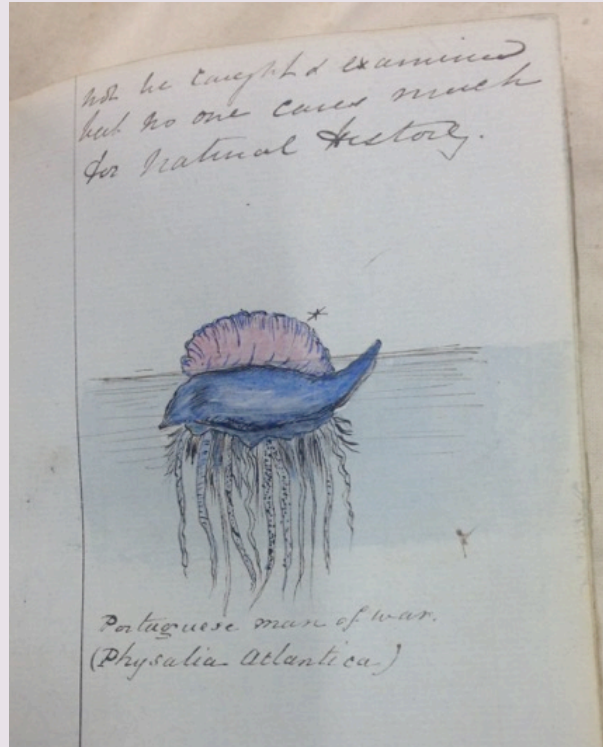 not be caught & examined
but no one cares much
for Natural History.
*
Portuguese man of war.
(Physalia Atlantica)